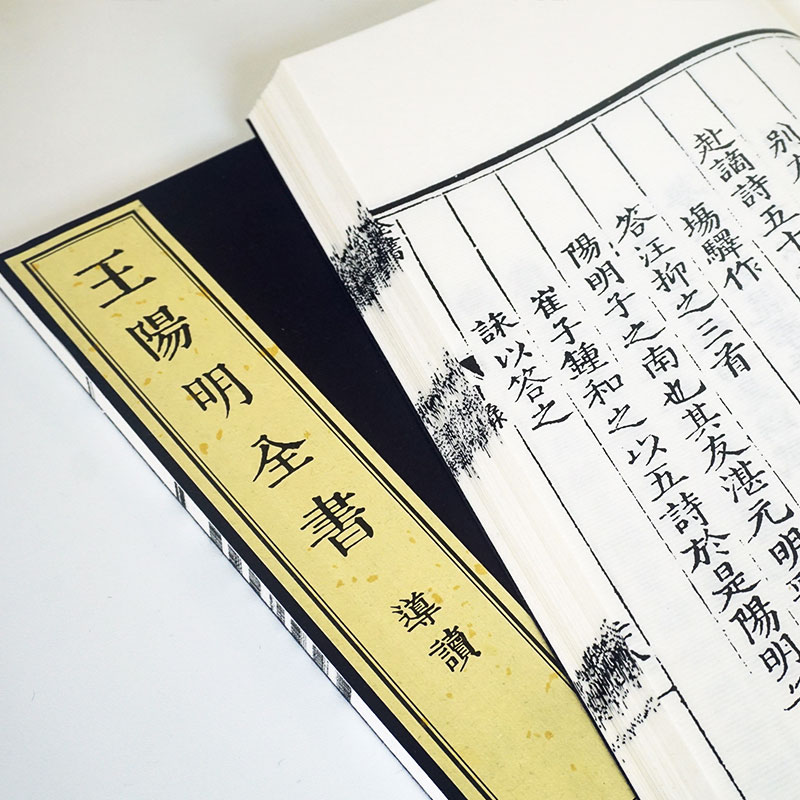 別
赴謫詩五十
塲驛作
答汪抑之三首
陽明子之南也其友湛元明
崔子鍾和之以五詩於是陽明
詠以答之
王陽明全書
導讀